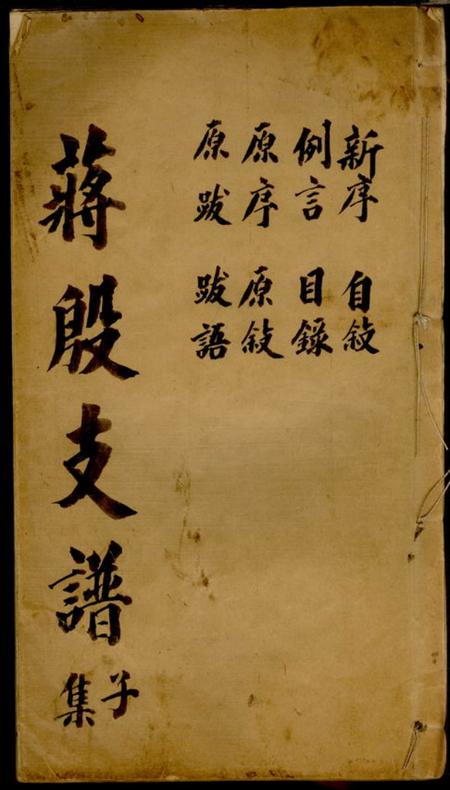 新序 自敘
例言 目錄
原序 原敘
原跋 跋語
蔣殷支譜
子集